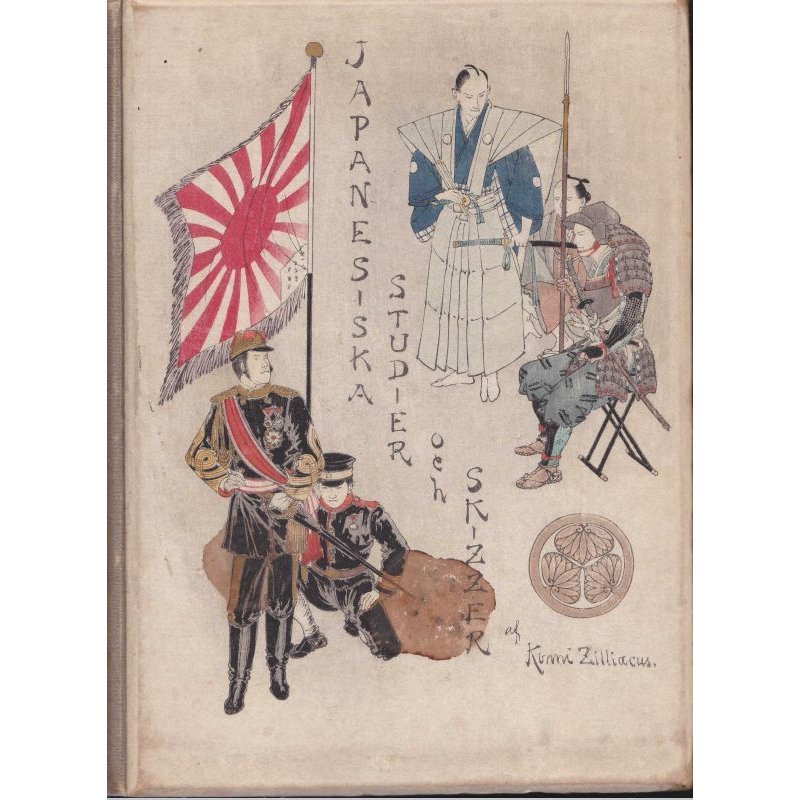 JAPANESISKA
STUDIER
och
SKIZZER
af
Konni Zilliacus.